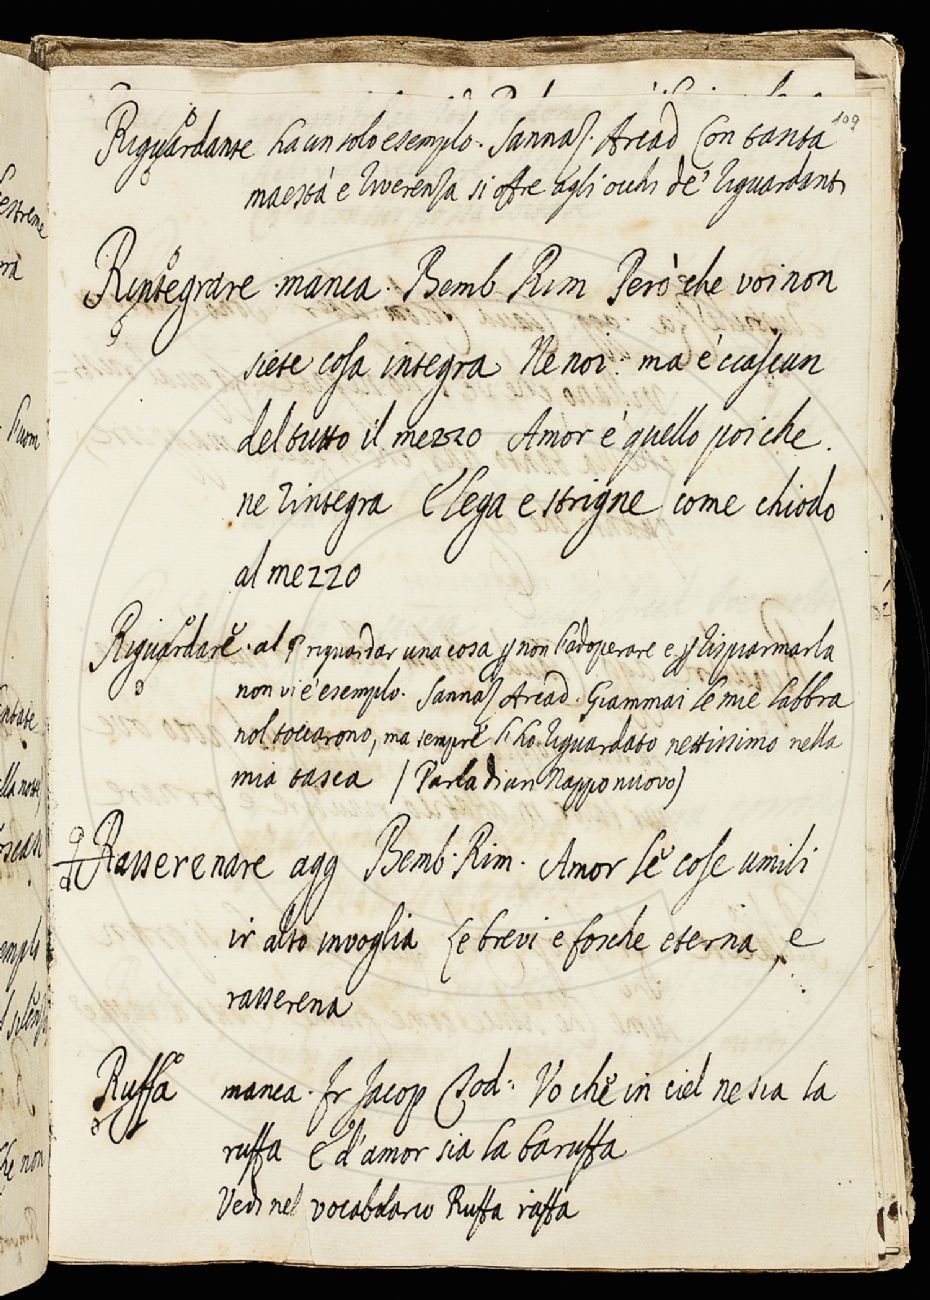 109
Riguardante ha un solo esempio. Sannaz. Arcad Con tanta
maestà e riverenza si offre agli occhi de' riguardanti
Rintegrare manca. Bemb Rim Però che voi non
siete cosa integra Ne noi. ma è ciascun
del tutto il mezzo Amor è quello poi che
ne rintegra E lega e strigne come chiodo
al mezzo
Riguardare. al § riguardar una cosa p non l'adoperare e p risparmiarla
non vi è esempio. Sannaz Arcad. Giammai le mie labbra
nol toccarono, ma sempre l'ho riguardato nettissimo nella
mia tasca (Parla di un Nappo nuovo)
Rasserenare agg Bemb. Rim. Amor le cose umili
ir alto invoglia Le brevi e fosche eterna, e
rasserena
Ruffa manca. fr Jacop Tod: Vo che in ciel ne sia la
ruffa E d'amor sia la baruffa
Vedi nel vocabolario Ruffa raffa